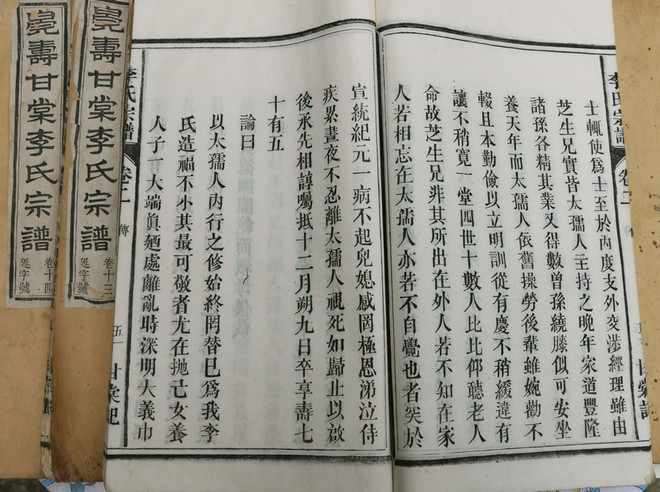 李氏宗譜 卷二 甘棠記
士輙使爲士至於內度支外交涉經理雖由
芝生兄實皆太孺人主持之晚年家道豐隆
諸孫各精其業又得數曾孫繞膝似可安坐
養天年而太孺人依舊操勞後輩雖婉勸不
輟且本勤儉以立明訓從有慶不稍緩違有
讓不稍寬一堂四世十數人比比仰聽老人
命故芝生兄非其所出在外人若不知在家
人若相忘在太孺人亦若不自覺也者奚於
宣統紀元一病不起兒媳感罔極恩涕泣侍
疾累晝夜不忍離太孺人視死如歸止以啟
後承先相諄囑抵十二月朔九日卒享壽七
十有五
論曰
以太孺人內行之修始終罔替已為我李
氏造福不小其最可敬者尤在拋己女養
人子一大端眞廼處離亂時深明大義巾
李氏宗譜 卷二 傳 五一 甘棠記
壽甘棠李氏宗譜 卷十三 延字號
壽甘棠李氏宗譜 卷十四 延字號